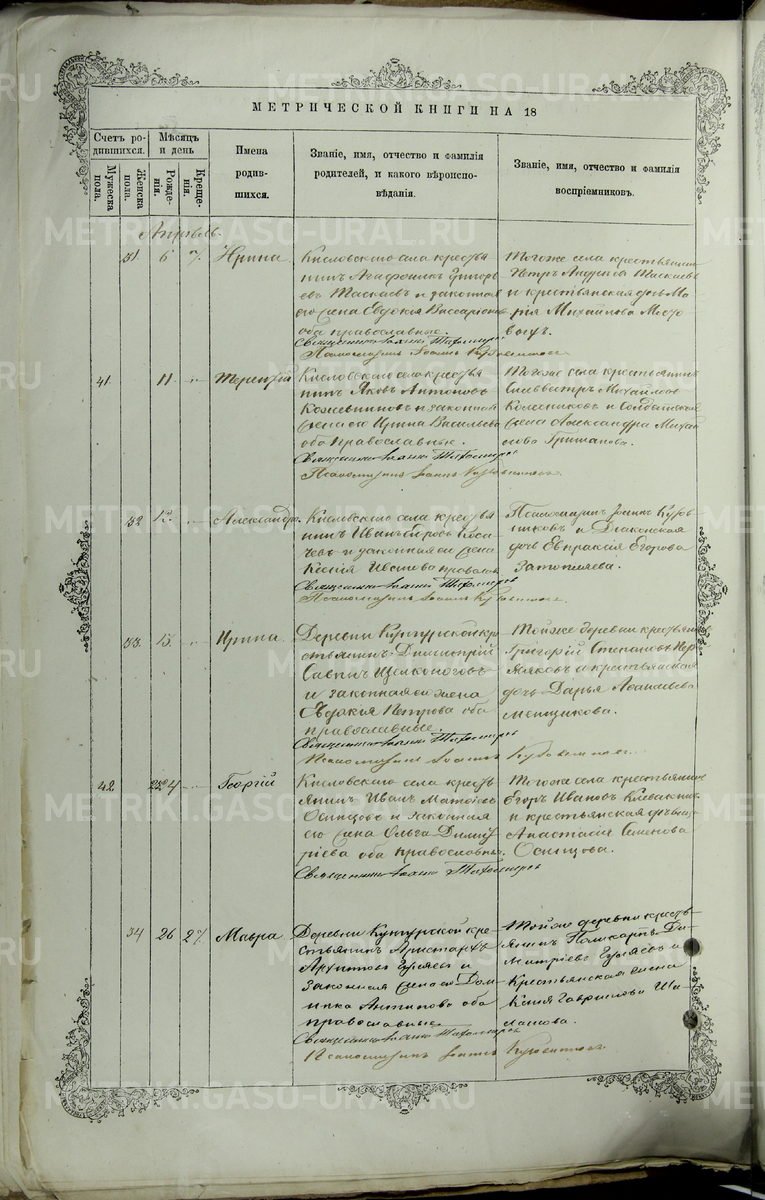 МЕТРИЧЕСКОЙ КНИГИ НА 18
Счетъ ро-
дившихся.
Мѣсяцъ
и день
Мужеска
пола.
Женска
пола.
Рожде-
нія.
Креще-
нія.
Имена
родив-
шихся.
Званіе, имя, отчество и фамилія
родителей, и какого вѣроиспо-
вѣданія.
Званіе, имя, отчество и фамилія
воспріемниковъ.
Апрѣль.
31 6 7 Ирина
Кисловскаго села крестья
нинъ Агафоникъ Григорь
евъ Таскаевъ и законная
его жена Евдокія Виссаріонова
оба православные.
Священникъ Іоаннъ Тихомировъ
Псаломщикъ Іоаннъ
Тогоже села крестьянинъ
Петръ Андреевъ Таскаевъ
и крестьянская дочь Ма
рія Михаилова
41 11 Терентій
Кисловскаго села крестья
нинъ Яковъ Антоновъ
Кожевниковъ и законная
жена его Ирина Васильева
оба православные.
Священникъ Іоаннъ Тихомировъ
Псаломщикъ Іоаннъ
Тогоже села крестьянинъ
Силвестръ Михайловъ
Колесниковъ и Солдатская
жена Александра Михай
лова Гришанова.
32 12 Александра
Кисловскаго села крестья
нинъ Иванъ
и законная его жена
Ксенія
Священникъ Іоаннъ Тихомировъ
Псаломщикъ Іоаннъ
Псаломщикъ Іоаннъ
и Діаконская
дочь Евпраксія Егорова
Затопляева.
33 15 Ирина
Деревни Кунгурской кре
стьянинъ Димитрій
Савинъ Щелконоговъ
и законная его жена
Евдокія Петрова оба
православные.
Священникъ Іоаннъ Тихомировъ
Псаломщикъ Іоаннъ
Тойже деревни крестьянинъ
Григорій Степановъ Пер
мяковъ и крестьянская
дочь Дарья Афанасьева
Менщикова.
42 24 Георгій
Кисловскаго села кресть
янинъ Иванъ
Осинцовъ и законная
его жена Ольга Димит
ріева оба православные.
Священникъ Іоаннъ Тихомировъ
Тогоже села крестьянинъ
Егоръ Ивановъ Клевакинъ
и крестьянская дѣвица
Анастасія Семенова
Осинцова.
34 26 27 Мавра
Деревни Кунгурской кре
стьянинъ Аристархъ
Архиповъ Гуляевъ и
законная жена его Дом
ника Антипова оба
православные
Священникъ Іоаннъ Тихомировъ
Псаломщикъ Іоаннъ
Тойже деревни кресть
янинъ Полікарпъ Ди
митріевъ Гуляевъ и
крестьянская жена
Ксенія Гаврилова
METRIKI.GASO-URAL.RU